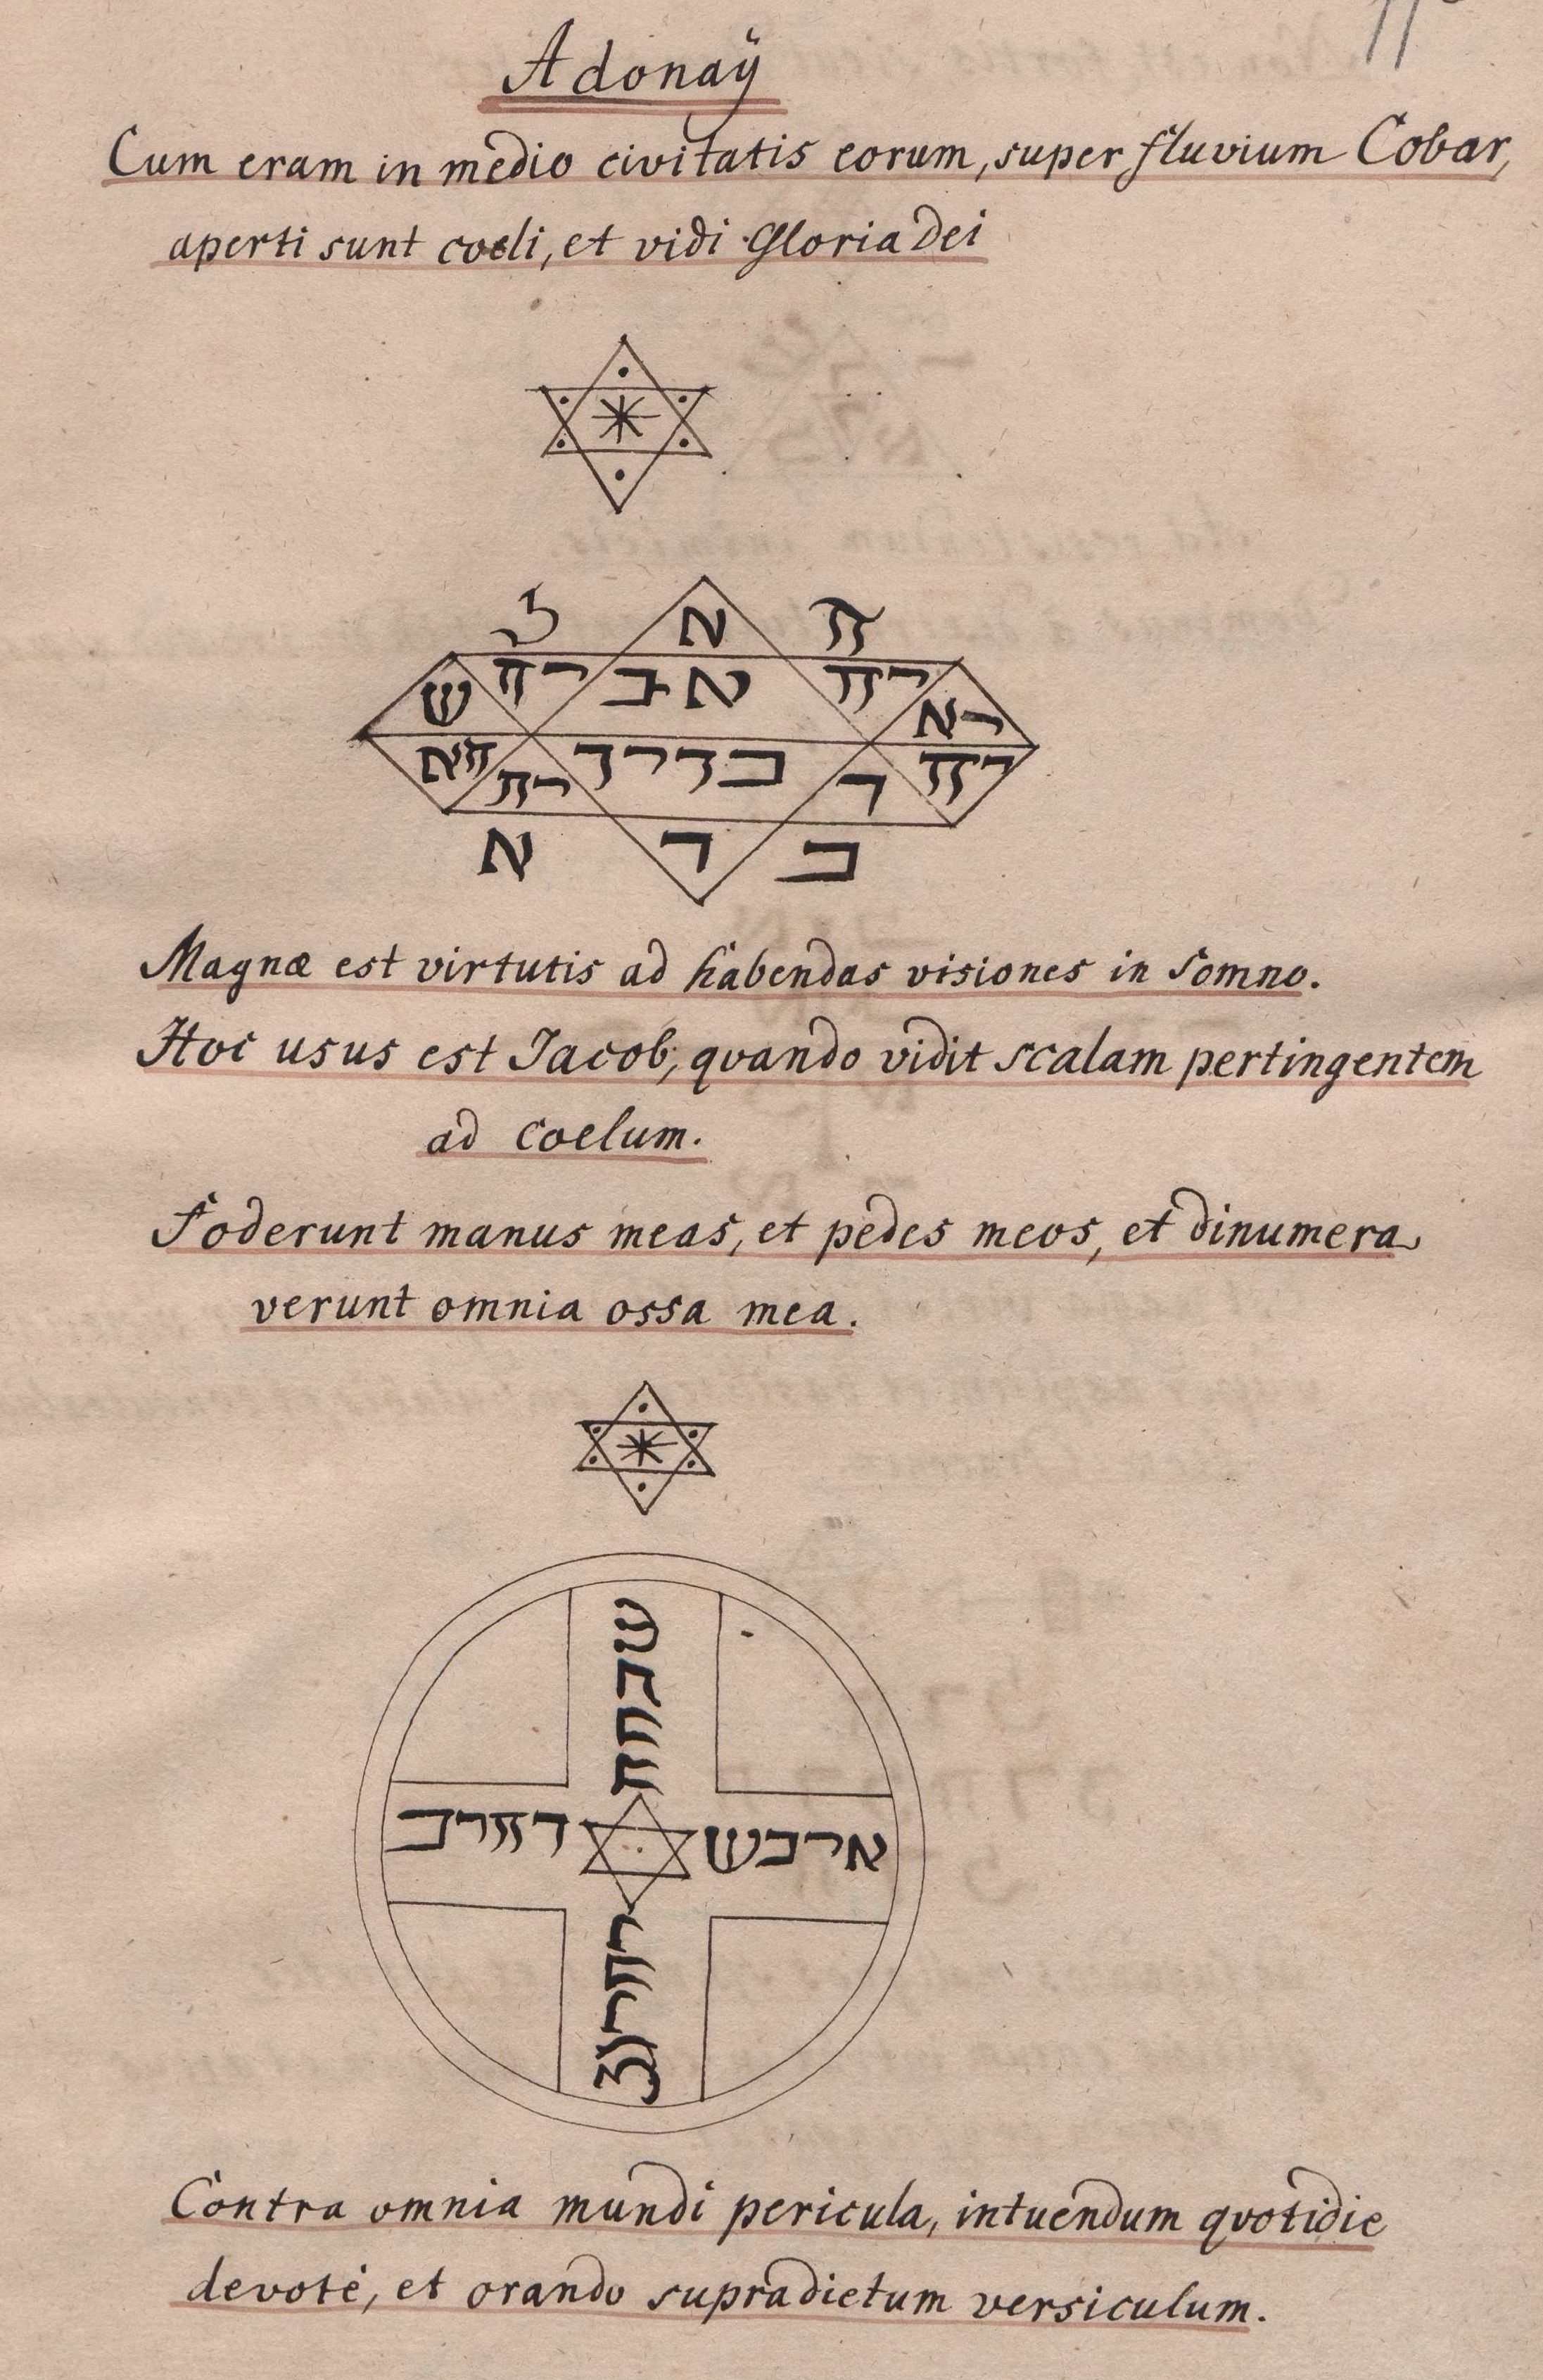 Adonaÿ
Cum eram in medio civitatis eorum, super fluvium Cobar,
aperti sunt coeli, et vidi Gloria Dei
א
אב
ש
א
ד
ב
Magnæ est virtutis ad habendas visiones in Somno.
Hoc usus est Jacob, quando vidit scalam pertingentem
ad Coelum.
Foderunt manus meas, et pedes meos, et dinumera
verunt omnia ossa mea.
ארבש
Contra omnia mundi pericula, intuendum quotidie
devotè, et orando supradictum versiculum.